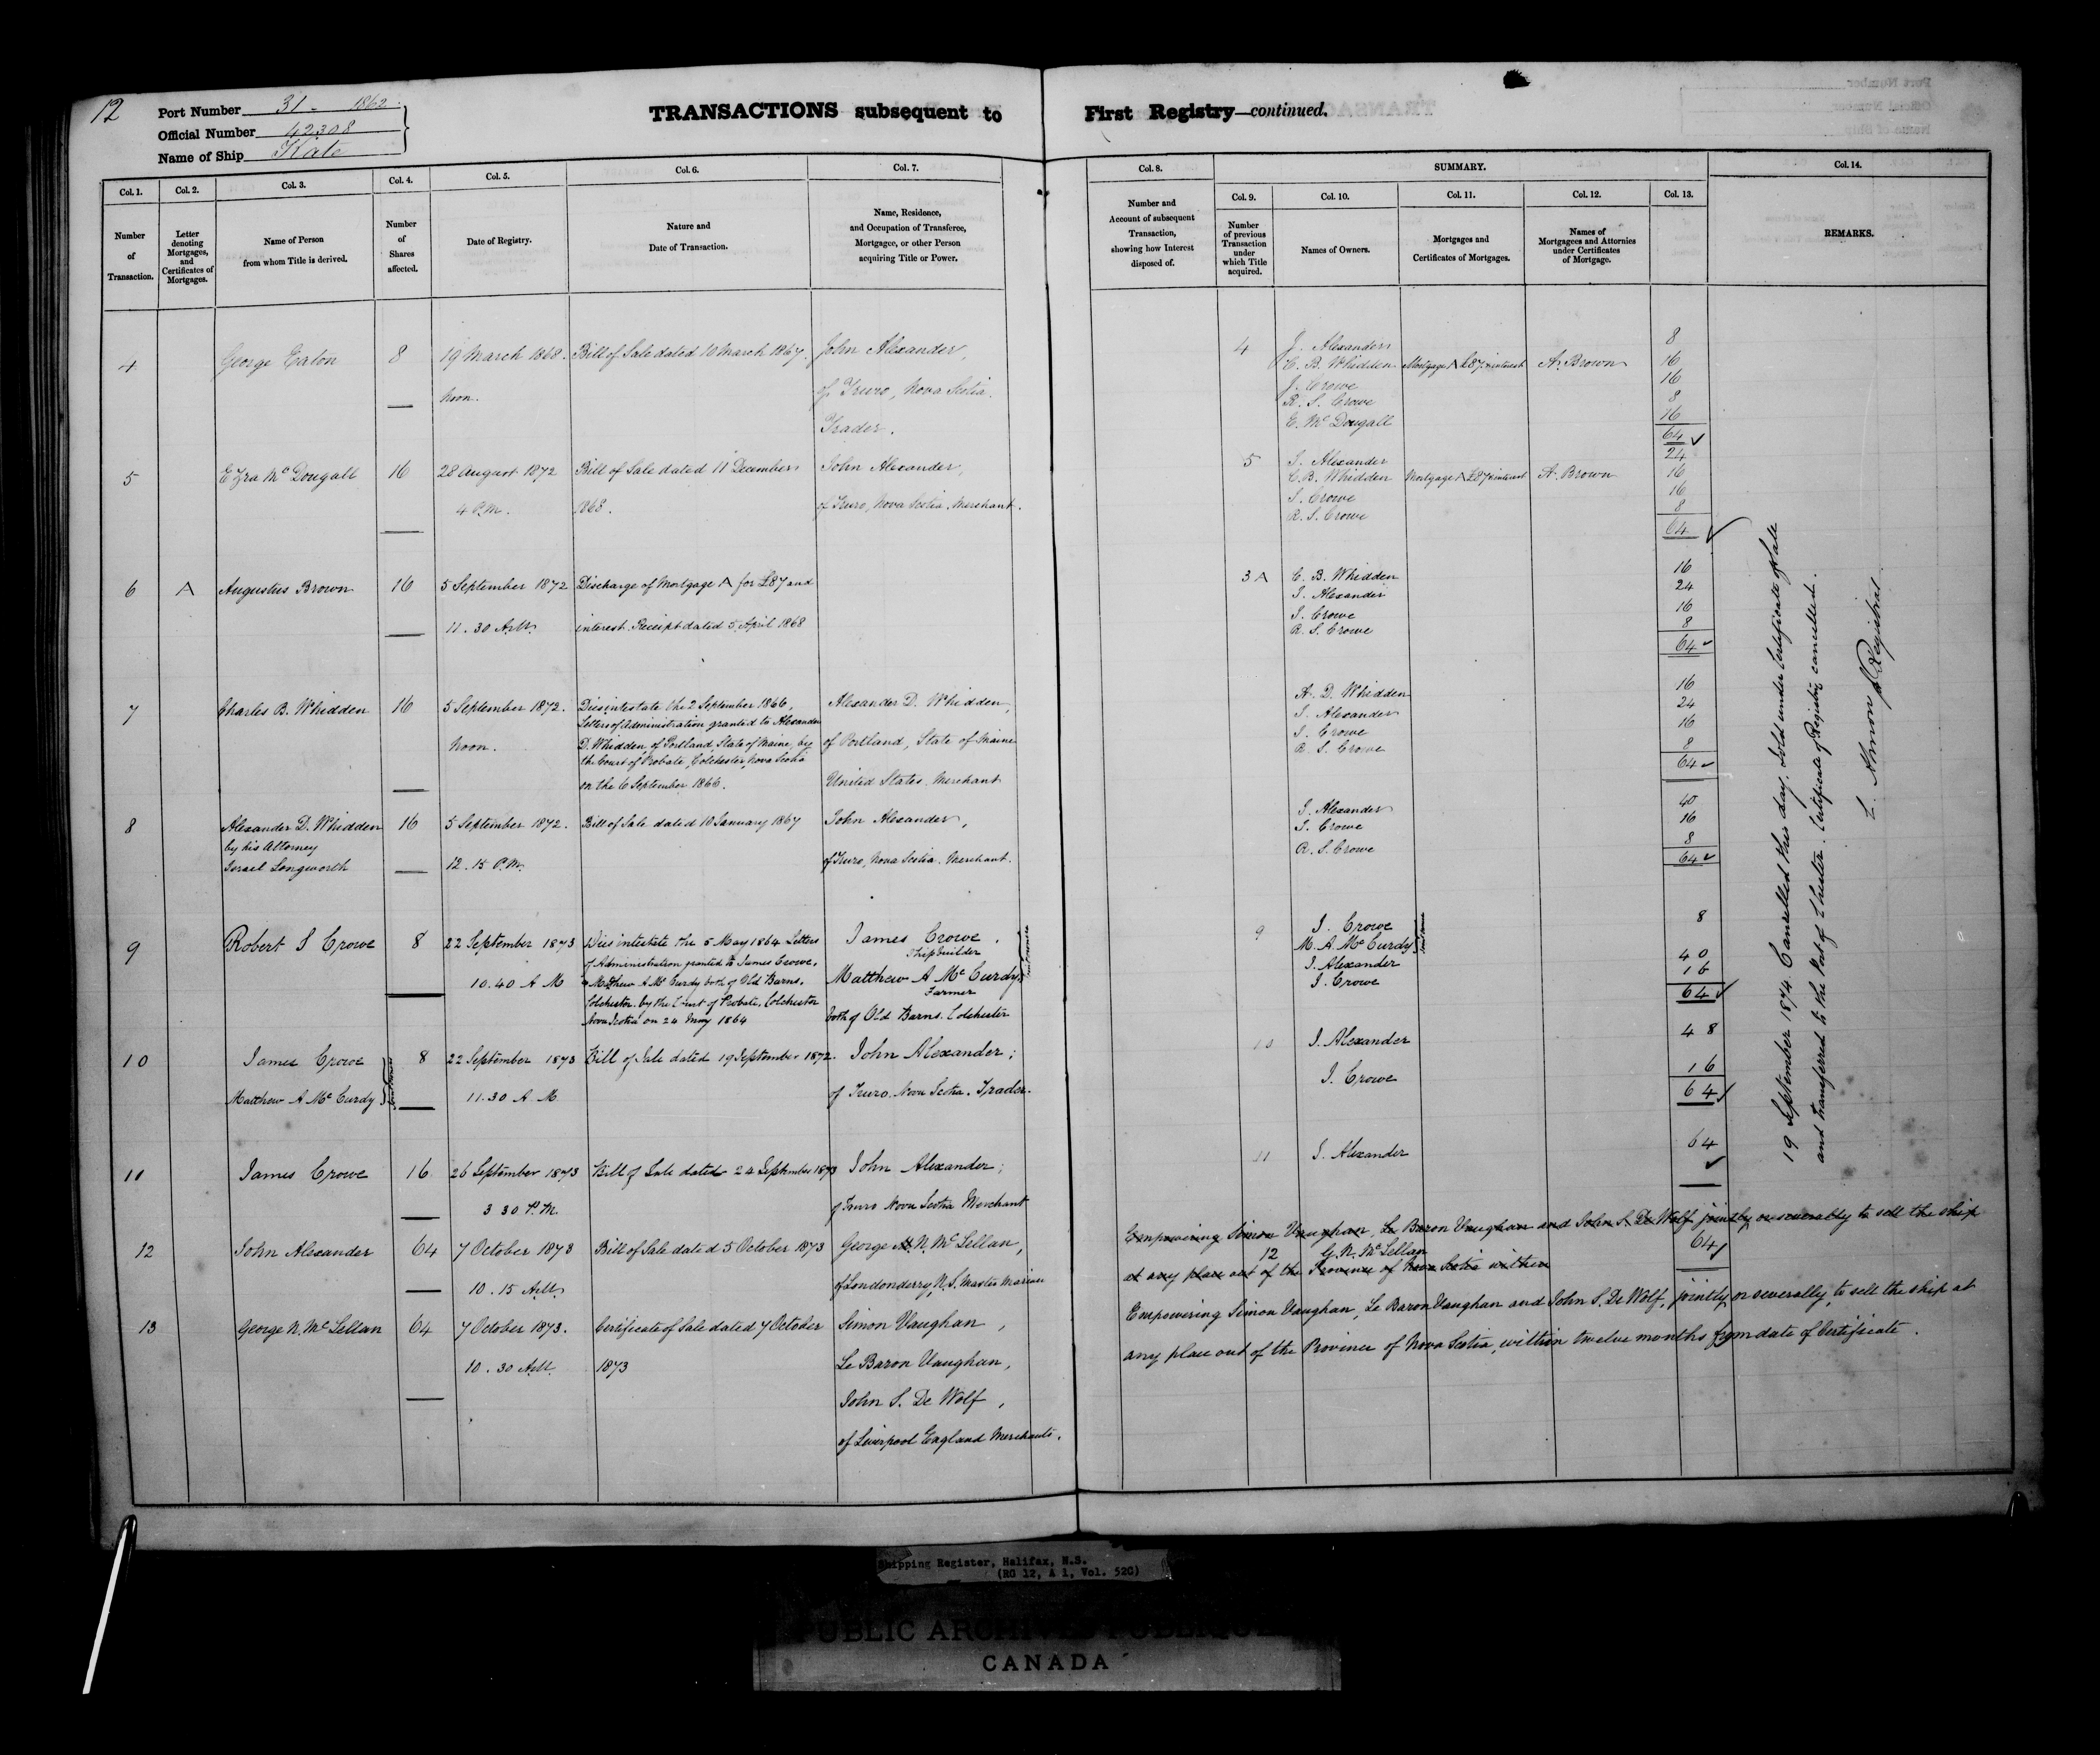 12
Port Number 31 - 1862
Official Number 42308
Name of Ship Kate
TRANSACTIONS subsequent to First Registry—continued.
Col. 1. Col. 2. Col. 3. Col. 4. Col. 5. Col. 6. Col. 7.
Number of Transaction.
Letter denoting Mortgages, and Certificates of Mortgages.
Name of Person from whom Title is derived.
Number of Shares affected.
Date of Registry.
Nature and Date of Transaction.
Name, Residence, and Occupation of Transferee, Mortgagee, or other Person acquiring Title or Power.
4 George Eaton 8 19 March 1868. Bill of Sale dated 10 March 1867. John Alexander,
Noon. of Truro, Nova Scotia.
Trader.
5 Ezra McDougall 16 28 August 1872 Bill of Sale dated 11 December John Alexander,
4 P.M. 1868. of Truro, Nova Scotia. Merchant.
6 A Augustus Brown 16 5 September 1872 Discharge of Mortgage A for £87 and
11.30 A.M. interest. Receipt dated 5 April 1868
7 Charles B. Whidden 16 5 September 1872. Dies intestate the 2 September 1866, Alexander D. Whidden,
Letters of Administration granted to Alexander
Noon. D. Whidden, of Portland, State of Maine, by of Portland, State of Maine
the Court of Probate, Colchester, Nova Scotia
on the 6 September 1866. United States. Merchant
8 Alexander D. Whidden 16 5 September 1872. Bill of Sale dated 10 January 1867 John Alexander,
by his Attorney
Israel Longworth 12.15 P.M. of Truro, Nova Scotia. Merchant.
9 Robert S Crowe 8 22 September 1873 Dies intestate the 5 May 1864 Letters James Crowe.
of Administration granted to James Crowe, Shipbuilder
10.40 A M & Mathew A Mc Curdy both of Old Barns, Matthew A McCurdy
Colchester. by the Court of Probate, Colchester Farmer
Nova Scotia on 24 May 1864 both of Old Barns. Colchester
10 James Crowe 8 22 September 1873 Bill of Sale dated 19 September 1872. John Alexander;
Matthew A McCurdy 11.30 A M of Truro. Nova Scotia. Trader.
11 James Crowe 16 26 September 1873 Bill of Sale dated 24 September 1873 John Alexander;
3 30 P.M. of Truro Nova Scotia Merchant
12 John Alexander 64 7 October 1873 Bill of Sale dated 5 October 1873 George N. McLellan,
10.15 A.M. of Londonderry, N.S. Master Mariner
13 George N. McLellan 64 7 October 1873. Certificate of Sale dated 7 October Simon Vaughan,
10.30 A.M. 1873 Le Baron Vaughan,
John S. De Wolf,
of Liverpool England Merchants.
Col. 8. SUMMARY. Col. 14.
Col. 9. Col. 10. Col. 11. Col. 12. Col. 13.
Number and Account of subsequent Transaction, showing how Interest disposed of.
Number of previous Transaction under which Title acquired.
Names of Owners.
Mortgages and Certificates of Mortgages.
Names of Mortgagees and Attornies under Certificates of Mortgage.
REMARKS.
4 J. Alexander 8
C. B. Whidden Mortgage A £87 & interest A. Brown 16
J. Crowe 16
R. S. Crowe 8
E. McDougall 16
64 ✓
5 J. Alexander 24
C. B. Whidden Mortgage A £87 & interest A. Brown 16
J. Crowe 16
R. S. Crowe 8
64 ✓
3 A C. B. Whidden 16
J. Alexander 24
J. Crowe 16
R. S. Crowe 8
64 ✓
A. D. Whidden 16
J. Alexander 24
J. Crowe 16
R. S. Crowe 8
64 ✓
J. Alexander 40
J. Crowe 16
R. S. Crowe 8
64 ✓
9 J. Crowe 8
M. A. McCurdy
J. Alexander 40
J. Crowe 16
64 ✓
10 J. Alexander 48
J. Crowe 16
64 ✓
11 J. Alexander 64
✓
Empowering Simon Vaughan, Le Baron Vaughan and John S. De Wolf jointly or severally to sell the ship
12 G. N. McLellan 64 ✓
at any place out of the Province of Nova Scotia within
Empowering Simon Vaughan, Le Baron Vaughan and John S. De Wolf, jointly or severally, to sell the ship at
any place out of the Province of Nova Scotia, within twelve months from date of Certificate.
19 September 1874 Cancelled this day. Sold under Certificate of Sale
and transferred to the Port of Chester. Certificate of Registry cancelled.
Registrar
Shipping Register, Halifax, N.S.
(RG 12, A 1, Vol. 520)
PUBLIC ARCHIVES PUBLIQUES
CANADA